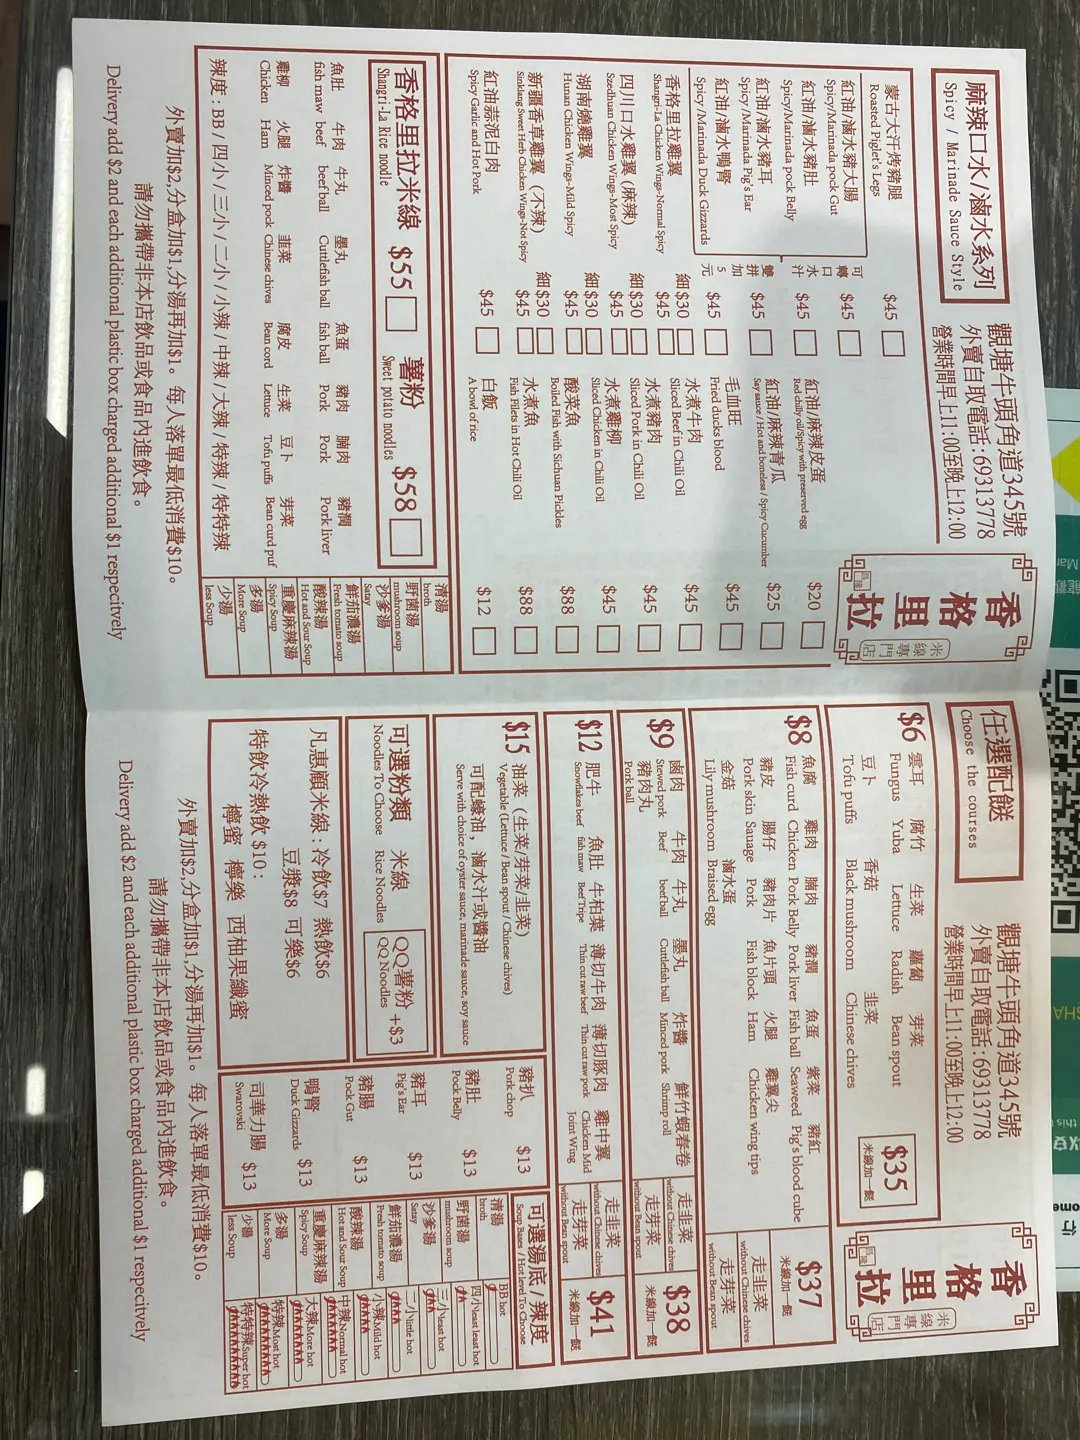 麻辣口水/滷水系列
Spicy / Marinade Sauce Style
觀塘牛頭角道345號
外賣自取電話:69313778
營業時間早上11:00至晚上12:00
香格里拉
米線專門店
蒙古大汗烤豬腿 $45
Roasted Piglet's Legs
紅油/滷水豬大腸 $45
Spicy/Marinada pock Gut
紅油/滷水豬肚 $45
Spicy/Marinada pock Belly
紅油/滷水豬耳 $45
Spicy/Marinada Pig's Ear
紅油/滷水鴨腎 $45
Spicy/Marinada Duck Gizzards
可轉口水汁
雙拼加5元
香格里拉雞翼 細$30 $45
Shangri-La Chicken Wings-Normal Spicy
四川口水雞翼 (麻辣) 細$30 $45
Szedhuan Chicken Wings-Most Spicy
湖南燒雞翼 細$30 $45
Hunan Chicken Wings-Mild Spicy
新疆香草雞翼 (不辣) 細$30 $45
Sinkiang Sweet Herb Chicken Wings-Not Spicy
紅油蒜泥白肉 $45
Spicy Garlic and Hot Pork
紅油/麻辣皮蛋 $20
Red chilly oil/Spicy with preserved egg
紅油/麻辣青瓜 $25
Soy sauce / Hot and boneless / Spicy Cucumber
毛血旺 $45
Fried ducks blood
水煮牛肉 $45
Sliced Beef in Chili Oil
水煮豬肉 $45
Sliced Pork in Chili Oil
水煮雞柳 $45
Sliced Chicken in Chili Oil
酸菜魚 $88
Boiled Fish with Sichuan Pickles
水煮魚 $88
Fish Filets in Hot Chili Oil
白飯 $12
A bowl of rice
香格里拉米線 $55 薯粉 $58
Shangri-La Rice noodle Sweet potato noodles
魚肚 牛肉 牛丸 墨丸 魚蛋 豬肉 腩肉 豬潤
fish maw beef beef ball Cuttlefish ball fish ball Pork Pork Pork liver
雞柳 火腿 炸醬 韮菜 腐皮 生菜 豆卜 芽菜
Chicken Ham Minced pock Chinese chives Bean cord Lettuce Tofu puffs Bean curd puf
辣度 : BB / 四小 / 三小 / 二小 / 小辣 / 中辣 / 大辣 / 特辣 / 特特辣
清湯
broth
野菌湯
mushroom soup
沙爹湯
Satay
鮮茄濃湯
Fresh tomato soup
酸辣湯
Hot and Sour Soup
重慶麻辣湯
Spicy Soup
多湯
More Soup
少湯
less Soup
外賣加$2,分盒加$1,分湯再加$1。每人落單最低消費$10。
請勿攜帶非本店飲品或食品內進飲食。
Delivery add $2 and each additional plastic box charged additional $1 respecitvely
任選配餸
Choose the courses
觀塘牛頭角道345號
外賣自取電話:69313778
營業時間早上11:00至晚上12:00
香格里拉
米線專門店
$6 雲耳 腐竹 生菜 蘿蔔 芽菜
Fungus Yuba Lettuce Radish Bean spout
豆卜 香菇 韭菜
Tofu puffs Black mushroom Chinese chives
$35
米線加一餸
$8 魚腐 雞肉 腩肉 豬潤 魚蛋 紫菜 豬紅
Fish curd Chicken Pork Belly Pork liver Fish ball Seaweed Pig's blood cube
豬皮 腸仔 豬肉片 魚片頭 火腿 雞翼尖
Pork skin Sauage Pork Fish block Ham Chicken wing tips
金菇 滷水蛋
Lily mushroom Braised egg
$37
米線加一餸
走韭菜
without Chinese chives
走芽菜
without Bean spout
$9 鹵肉 牛肉 牛丸 墨丸 炸醬 鮮竹蝦春卷
Stewed pork Beef beef ball Cuttlefish ball Minced pork Shrimp roll
豬肉丸
Pork ball
走韭菜
without Chinese chives
走芽菜
without Bean spout
$38
米線加一餸
$12 肥牛 魚肚 牛柏葉 薄切牛肉 薄切豚肉 雞中翼
Snowflakes beef fish maw Beef Tripe Thin cut raw beef Thin cut raw pork Chicken Mid Joint Wing
走韭菜
without Chinese chives
走芽菜
without Bean spout
$41
米線加一餸
$15 油菜 (生菜/芽菜/韭菜)
Vegetable (Lettuce / Bean spout / Chinese chives)
可配蠔油, 滷水汁或醬油
Serve with choice of oyster sauce, marinade sauce, soy sauce
可選粉類 米線 QQ薯粉 +$3
Noodles To Choose Rice Noodles QQ Noodles
凡惠顧米線 : 冷飲$7 熱飲$6
豆漿$8 可樂$6
特飲冷熱飲 $10 :
檸蜜 檸樂 西柚果纖蜜
豬扒 $13
Pork chop
豬肚 $13
Pock Belly
豬耳 $13
Pig's Ear
豬腸 $13
Pock Gut
鴨腎 $13
Duck Gizzards
司華力腸 $13
Swarovski
可選湯底 / 辣度
Soup Bases / Hot level To Choose
清湯
broth
野菌湯
mushroom soup
沙爹湯
Satay
鮮茄濃湯
Fresh tomato soup
酸辣湯
Hot and Sour Soup
重慶麻辣湯
Spicy Soup
多湯
More Soup
少湯
less Soup
BB hot
四小least least hot
三小least hot
二小little hot
小辣Mild hot
中辣Normal hot
大辣More hot
特辣Most hot
特特辣Super hot
外賣加$2,分盒加$1,分湯再加$1。每人落單最低消費$10。
請勿攜帶非本店飲品或食品內進飲食。
Delivery add $2 and each additional plastic box charged additional $1 respecitvely